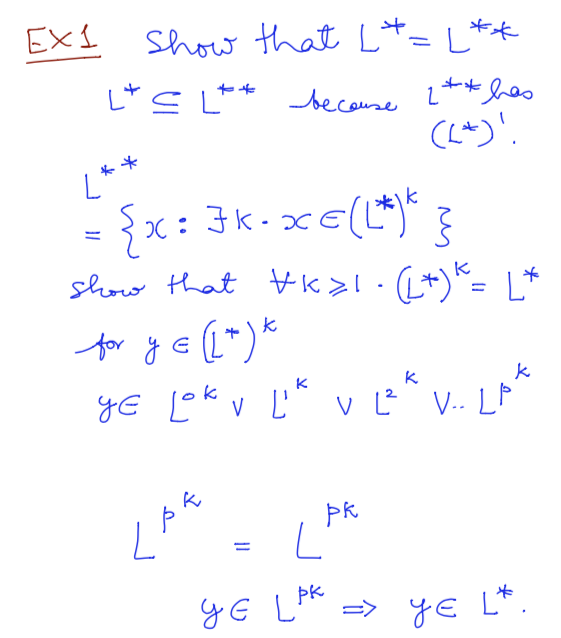 EX1 Show that L* = L**
L* ⊆ L** because L** has
(L*)¹.
L**
= {x : ∃k · x ∈ (L*)ᵏ}
show that ∀k ⩾ 1 · (L*)ᵏ = L*
for y ∈ (L*)ᵏ
y ∈ L⁰ᵏ ∨ L¹ᵏ ∨ L²ᵏ ∨.. Lᵖᵏ
L^p^k = L^pk
y ∈ L^pk => y ∈ L*.